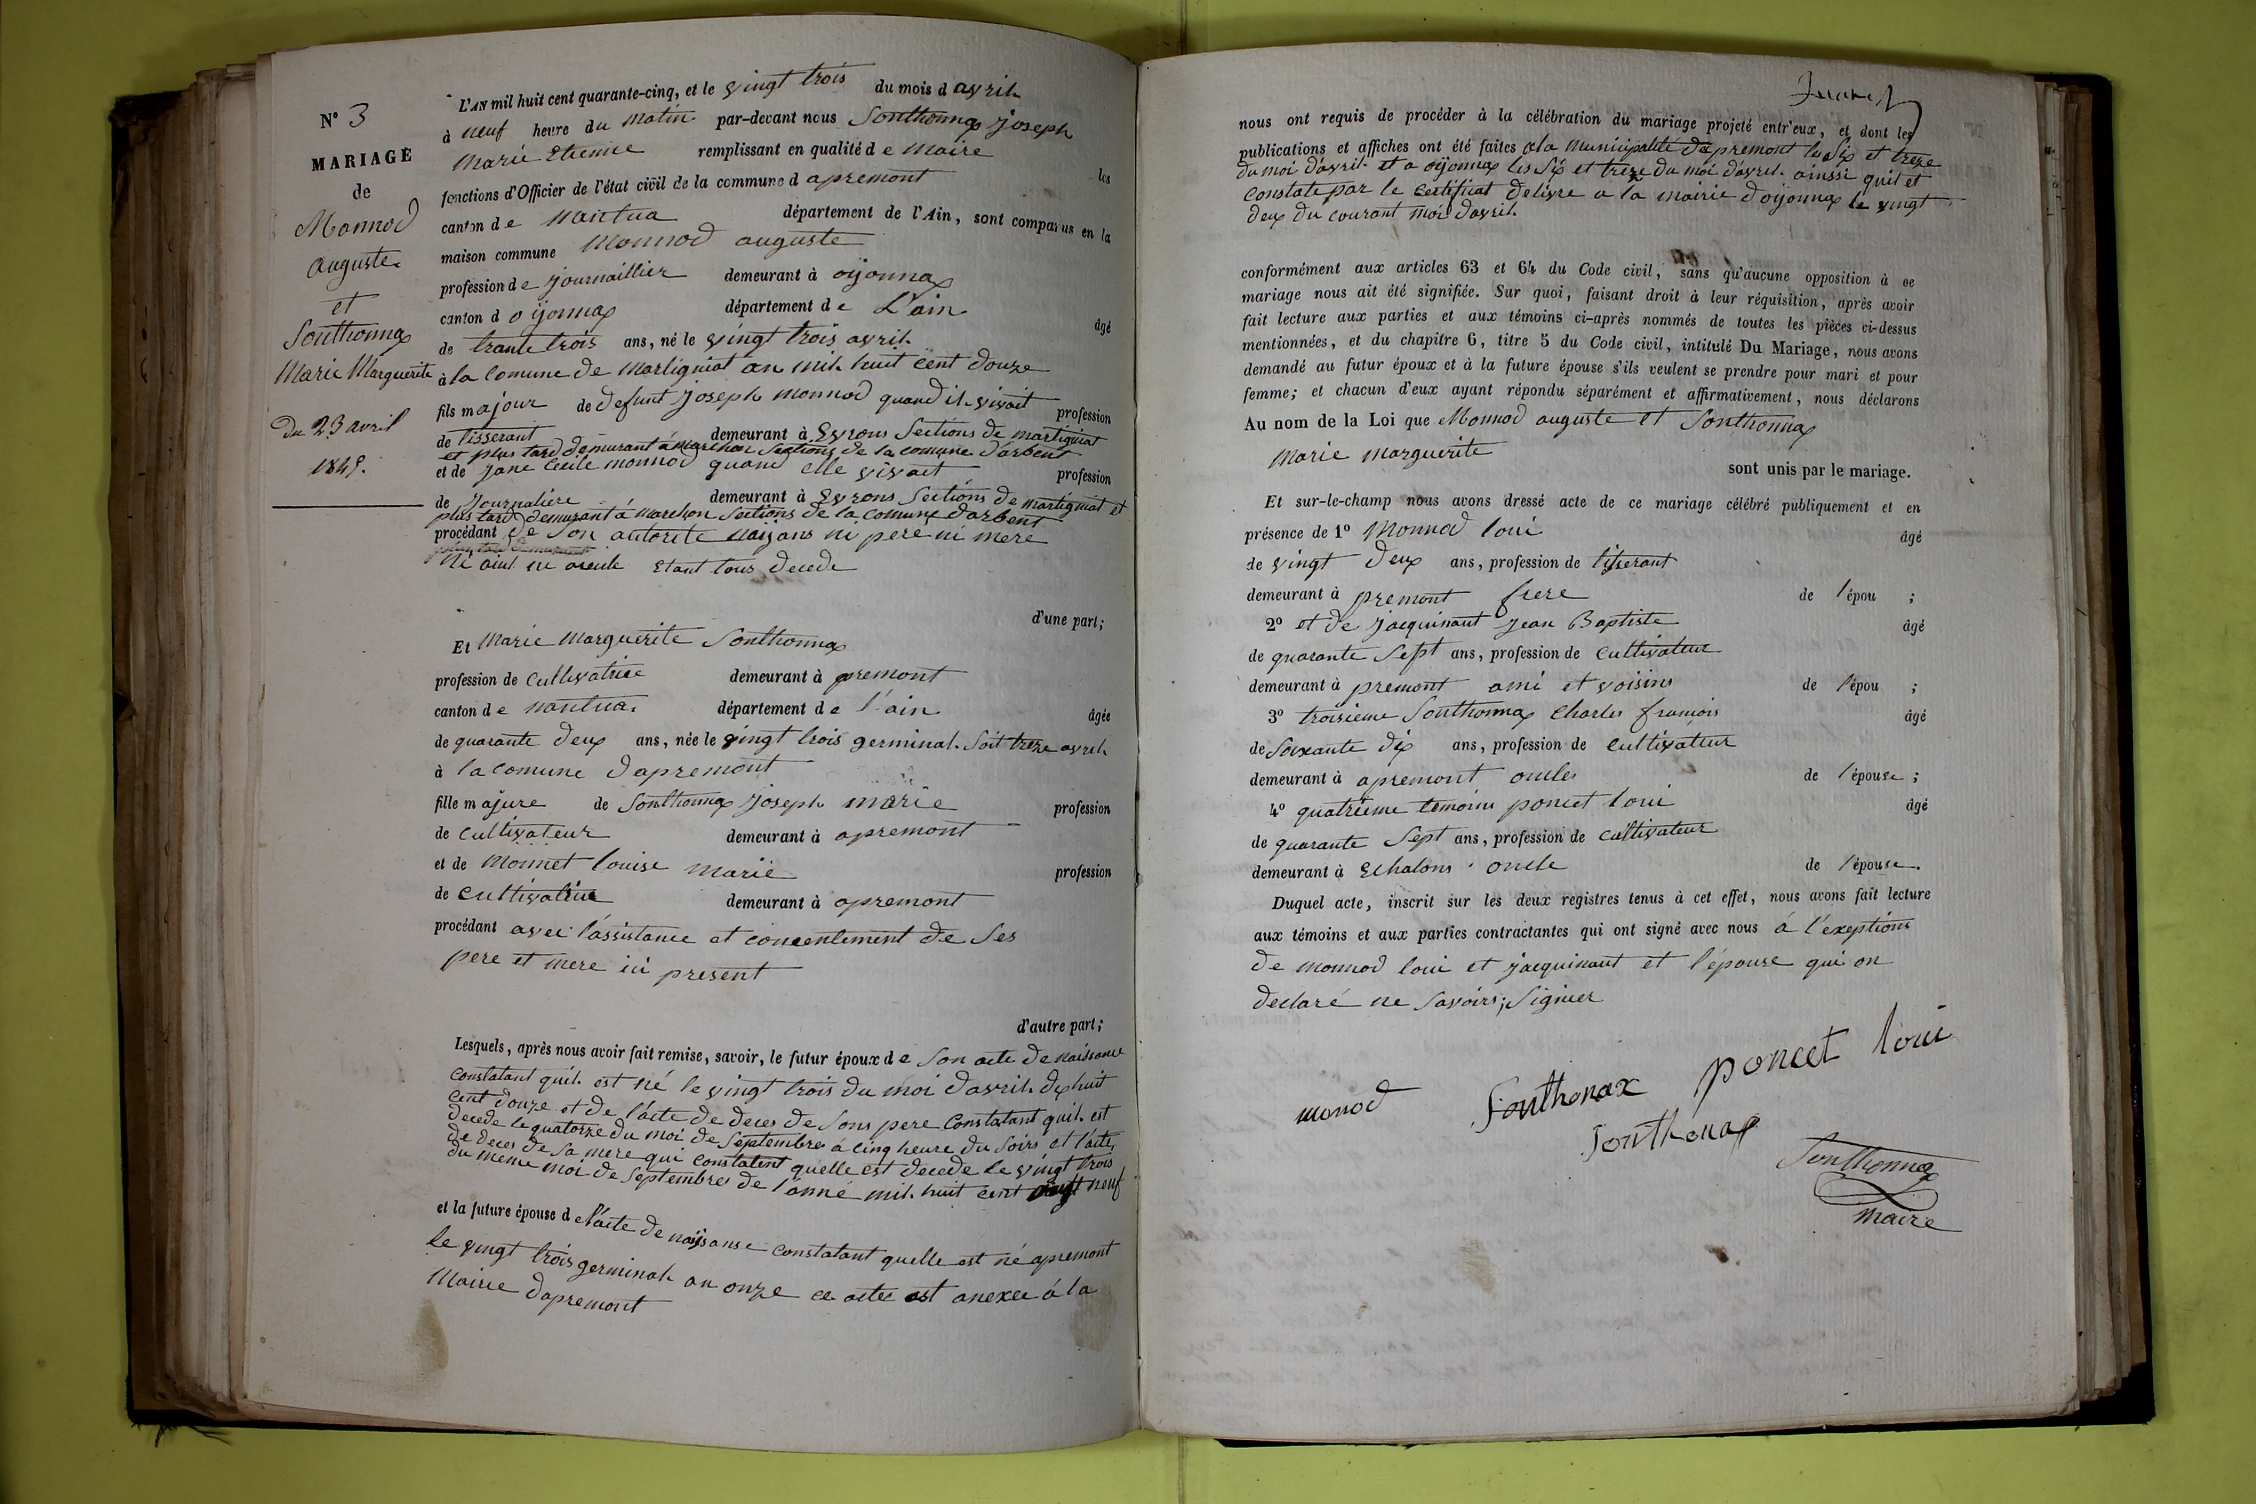 N° 3
MARIAGE
de
Monnod
auguste
et
Sonthonnax
Marie Marguerite
Du 23 avril
1845.
L'AN mil huit cent quarante-cinq, et le vingt trois du mois d avril
à neuf heure du matin par-devant nous Sonthonnax joseph
Marie Etienne remplissant en qualité d e Maire les
fonctions d'Officier de l'état civil de la commune d apremont
canton d e nantua département de l'Ain, sont comparus en la
maison commune Monnod auguste
profession d e journaillier demeurant à oijonnax
canton d oijonnax département d e L'ain âgé
de trante trois ans, né le vingt trois avril
à la comune de Martigniat an mil huit cent douze
fils majour de defunt joseph monnod quand il vivait profession
de tisserant demeurant à Evrons Sections de martigniat
et plus tard demurant á marchon Sections de la comune d'arbent
et de jane Cecile monnod quand elle vivait profession
de journaliere demeurant à Evrons Sections de martigniat et
plus tard demurant á marchon Sections de la comune darbent
procédant de Son autorite naijans ni pere ni mere
Ni aiul ni aieule Etant tous decede
d'une part;
Et Marie Marguerite Sonthonnax
profession de Cultivatrice demeurant à premont
canton d e nantua département d e l'ain âgée
de quarante deux ans, née le vingt trois germinal Soit treze avril
à la comune d'apremont
fille majure de Sonthonnax joseph marie profession
de cultivateur demeurant à apremont
et de Monnet louise marie profession
de cultivatrice demeurant à apremont
procédant avec l'assistance et concentement de Ses
pere et mere ici present
d'autre part;
Lesquels, après nous avoir fait remise, savoir, le futur époux d e Son acte de naissance
constatant quil est né le vingt trois du moi davril dix huit
cent douze et de l'acte de deces de Sons pere Constatant quil est
decede le quatorze du moi de Septembre á cinq heure du Soirs et l'acte
de deces de Sa mere qui constatent quelle est decede le vingt trois
du meme moi de Septembre de l'anné mil huit cent vingt neuf
et la future épouse d e l'acte de naijsanse constatant quelle est né apremont
le vingt trois germinal an onze ce actes est anexee á la
Mairie dapremont
nous ont requis de procéder à la célébration du mariage projeté entr'eux, et dont les
publications et affiches ont été faites a la municipalite dapremont les Six et treze
du moi davril et a oijonnax les Six et treze du moi d'avril ainssi quil et
constate par le certificat delivre a la mairie d'oijonnax le vingt
deux du courant moi davril
conformément aux articles 63 et 64 du Code civil, sans qu'aucune opposition à ce
mariage nous ait été signifiée. Sur quoi, faisant droit à leur réquisition, après avoir
fait lecture aux parties et aux témoins ci-après nommés de toutes les pièces ci-dessus
mentionnées, et du chapitre 6, titre 5 du Code civil, intitulé Du Mariage, nous avons
demandé au futur époux et à la future épouse s'ils veulent se prendre pour mari et pour
femme; et chacun d'eux ayant répondu séparément et affirmativement, nous déclarons
Au nom de la Loi que Monnod auguste et Sonthonnax
Marie Marguerite
sont unis par le mariage.
Et sur-le-champ nous avons dressé acte de ce mariage célébré publiquement et en
présence de 1° Monnod loui âgé
de vingt deux ans, profession de tisserant
demeurant à premont frere de l'épou ;
2° et de jacquinant jean Baptiste âgé
de quarante Sept ans, profession de cultivateur
demeurant à premont ami et voisins de l'épou ;
3° troisieme Sonthonnax Charles francois âgé
de Soixante dix ans, profession de cultivateur
demeurant à apremont oncles de l'épouse ;
4° quatrieme temoins poncet loui âgé
de quarante Sept ans, profession de cultivateur
demeurant à Echalons oncle de l'épouse.
Duquel acte, inscrit sur les deux registres tenus à cet effet, nous avons fait lecture
aux témoins et aux parties contractantes qui ont signé avec nous á l'exeptions
de monnod loui et jacquinant et l'épouse qui on
declaré ne Savoirs; Signier
monod Sonthonax poncet loui
Sonthonax
Sonthonnax
maire